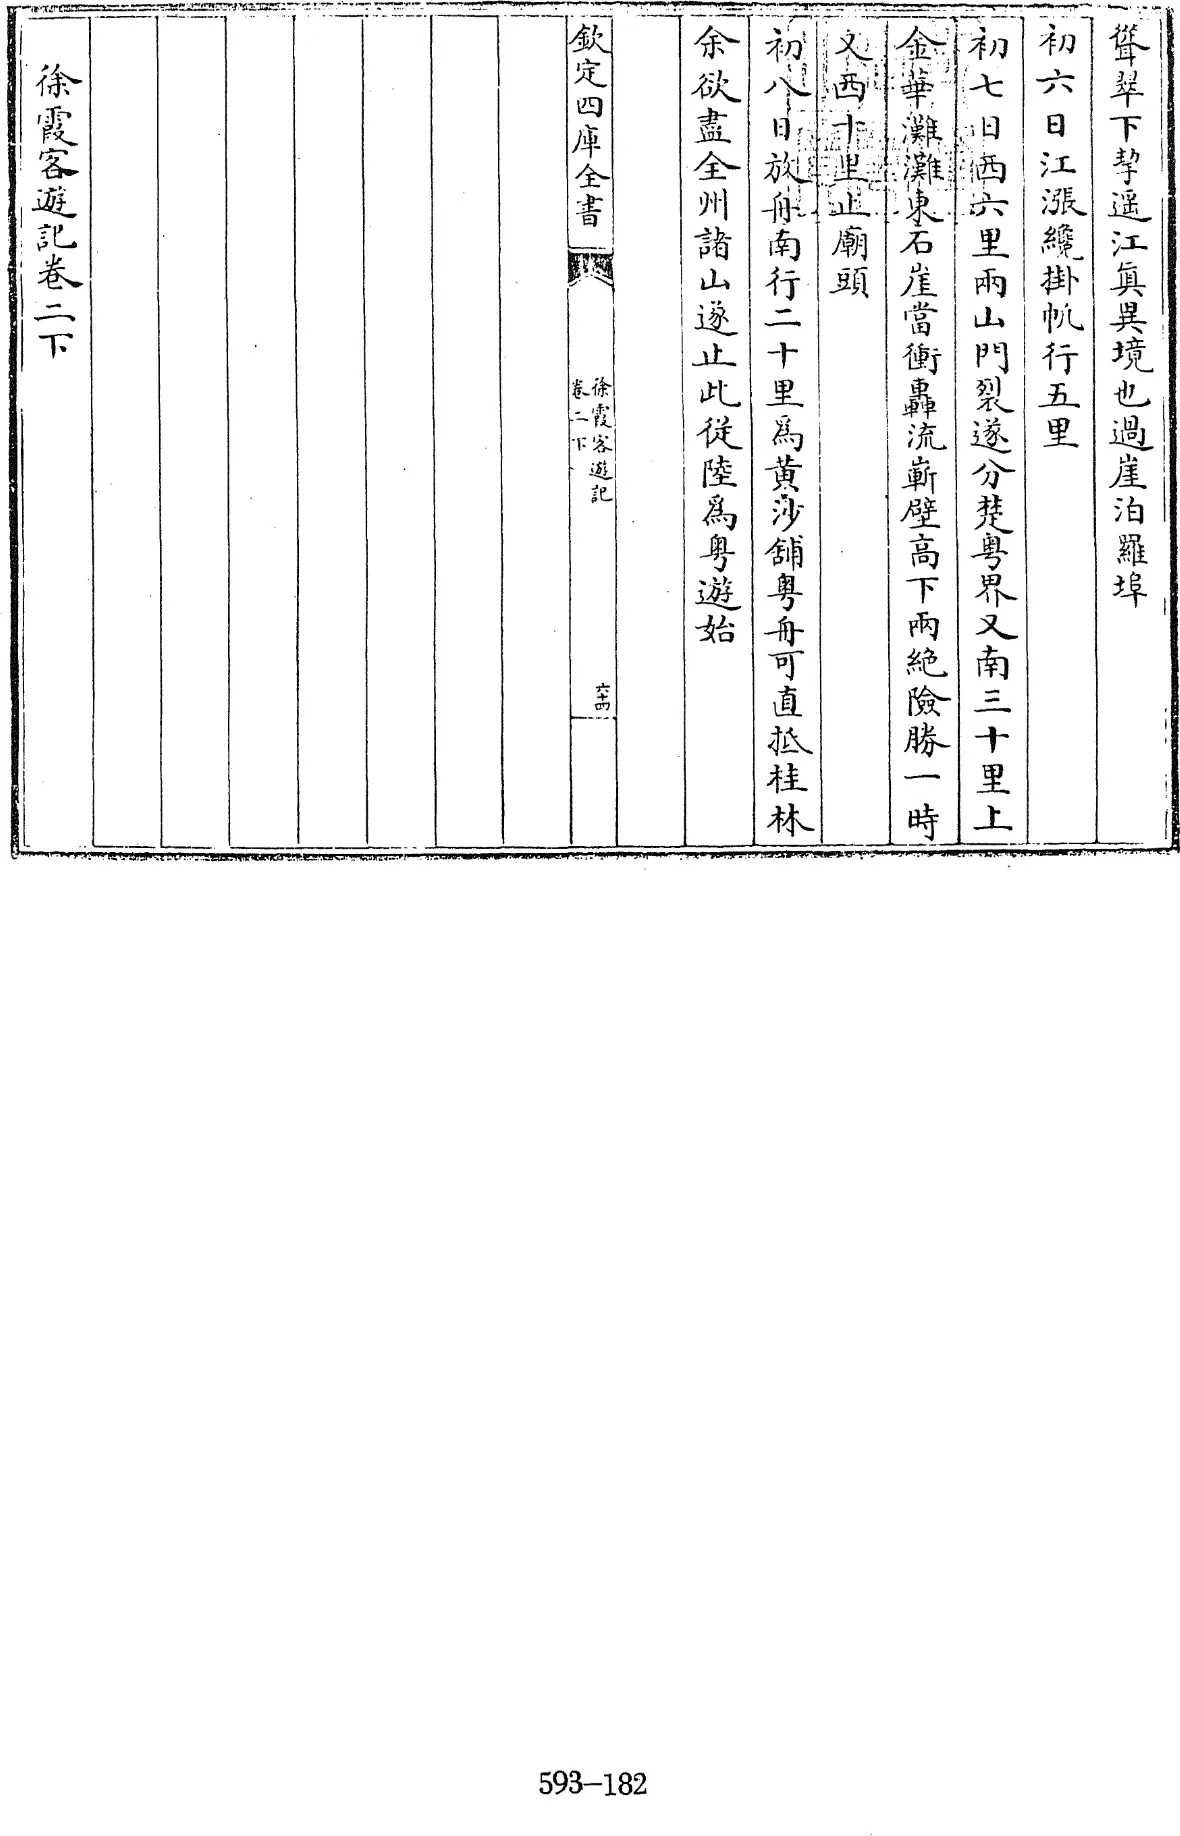 聳翠下挈遥江真異境也過崖泊羅埠
初六日江漲纜掛帆行五里
初七日西六里兩山門裂遂分楚粤界又南三十里上
金華灘灘東石崖當衝轟流嶄壁高下兩絶險勝一時
又西十里止廟頭
初八日放舟南行二十里爲黄沙舖粤舟可直抵桂林
余欲盡全州諸山遂止此從陸爲粤遊始
欽定四庫全書
徐霞客遊記
卷二下
六十四
徐霞客遊記卷二下
593-182